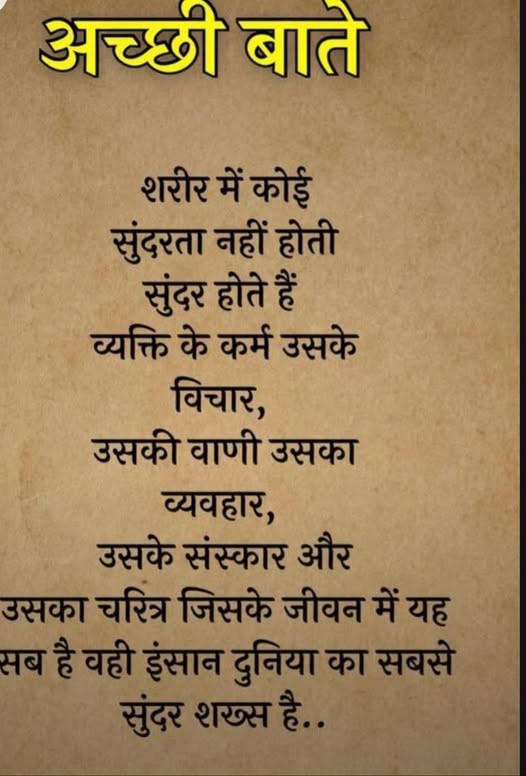 अच्छी बाते
शरीर में कोई
सुंदरता नहीं होती
सुंदर होते हैं
व्यक्ति के कर्म उसके
विचार,
उसकी वाणी उसका
व्यवहार,
उसके संस्कार और
उसका चरित्र जिसके जीवन में यह
सब है वही इंसान दुनिया का सबसे
सुंदर शख्स है..